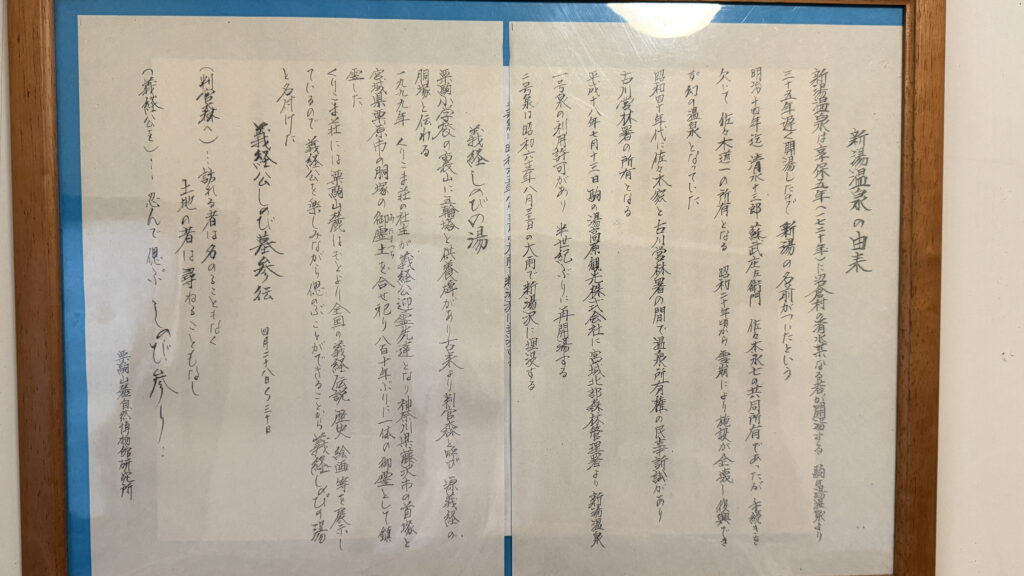 新湯温泉の由来
新湯温泉は享保五年(一七二十年)に沼倉村の肴沢某なる者が開湯する 駒の湯温泉より
三十五年遅く開湯したので 新湯の名前がついたという
明治十四年迄 清水十三郎 蘇武庄左衛門 佐々木永七の共同所有であったが 手続きを
欠いて 佐々木道一の所有となる 昭和二十年頃から 雪崩により施設が全壊し復興できず
が幻の温泉となっていた
昭和四十年代に佐々木家と古川営林署の間で温泉所有権の民事訴訟があり
古川営林署の所有となる
平成十八年七月十三日 駒の湯高原観光株式会社に宮城北部森林管理署より 新湯温泉
一号泉の利用許可があり 半世紀ぶりに再開湯する
二号泉は昭和六三年八月三一日の大雨で新湯沢に埋没する
義経しのびの湯
栗駒小学校の裏山に五輪塔と供養碑があり古来より判官森と呼び 源義経の
胴塚と伝わる
一九九九年 くりこま荘の社主が義経公迎霊先達となり神奈川県藤沢市の首塚と
宮城県栗原市の胴塚の御霊土を合せ祀り八百十年ぶりに一体の御霊として鎮
霊した
くりこま荘には栗駒山麓はもとより全国の義経伝説 歴史 絵画等を展示し
ているので 義経公を楽しみながら偲のぶことができることから 義経しのびの湯
と名付けた
義経公しのび墓参伝
四月二十八日〜三十日
(判官森へ)…訪れる者は名のることもなく
土地の者は尋ねることもなし
(義経公を)…忍んで偲ぶ しのび参り…
栗駒山麓自然博物館研究所